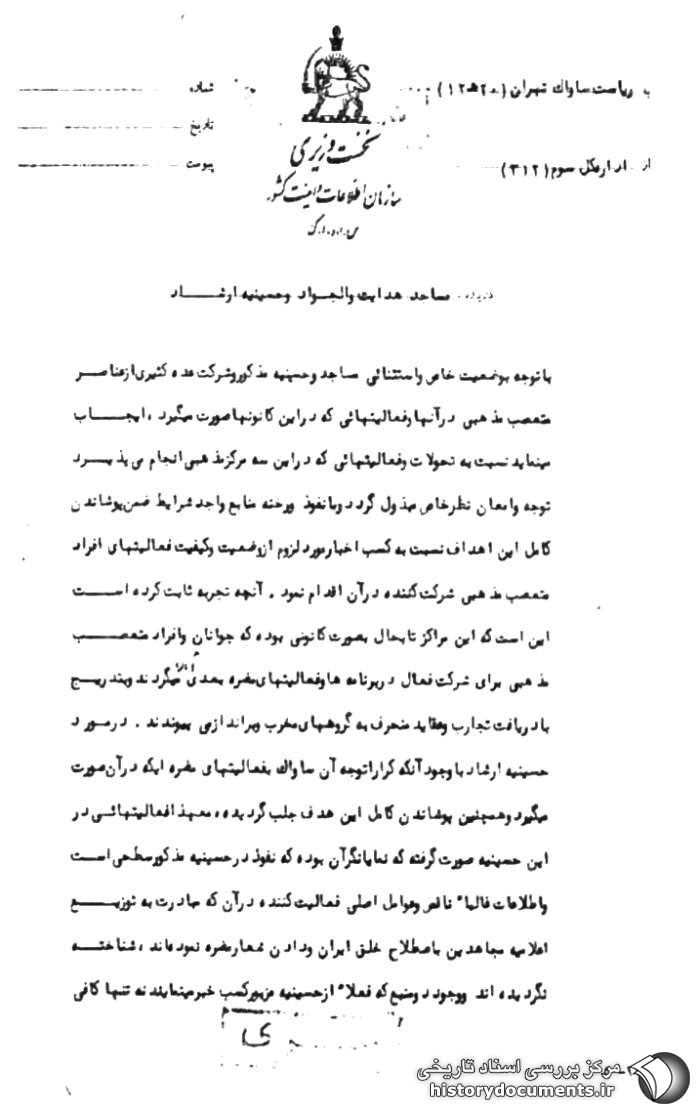 به ریاست ساواک تهران (۲۰ ه ۱۲)
شماره
تاریخ
از اداره کل سوم (۳۱۲)
پیوست
نخست وزیری
سازمان اطلاعات و امنیت کشور
س.ا.و.ا.ک
درباره مساجد هدایت والجواد وحسینیه ارشاد
با توجه بوضعیت خاص واستثنائی مساجد وحسینیه مذکور وشرکت عده کثیری از عناصر
متعصب مذهبی در آنها وفعالیتهائی که در این کانونها صورت میگیرد ، ایجاب
مینماید نسبت به تحولات وفعالیتهائی که در این سه مرکز مذهبی انجام می پذیرد
توجه وامعان نظر خاص مبذول گردد وبا نفوذ ورخنه منابع واجد شرایط ضمن پوشاندن
کامل این اهداف نسبت به کسب اخبار مورد لزوم از وضعیت وکیفیت فعالیتهای افراد
متعصب مذهبی شرکت کننده در آن اقدام نمود . آنچه تجربه ثابت کرده است
این است که این مراکز تابحال بصورت کانونی بوده که جوانان وافراد متعصب
مذهبی برای شرکت فعال در برنامه ها وفعالیتهای مضره بعدی میگردند وبتدریج
با دریافت تجارب وعقاید منحرف به گروههای مخرب وبراندازی پیوندند . در مورد
حسینیه ارشاد با وجود آنکه کرارا توجه آن ساواک بفعالیتهای مضره ایکه در آن صورت
میگیرد وهمچنین پوشاندن کامل این هدف جلب گردیده ، معهذا فعالیتهائی در
این حسینیه صورت گرفته که نمایانگر آن بوده که نفوذ در حسینیه مذکور سطحی است
واطلاعات غالباً ناقص وعوامل اصلی فعالیت کننده در آن که مبادرت به توزیع
اعلامیه مجاهدین باصطلاح خلق ایران ودادن شعار مضره نموده اند ، شناخته
نگردیده اند ووجود دو منبع که فعلاً از حسینیه مزبور کسب خبر مینمایند نه تنها کافی
مرکز بررسی اسناد تاریخی
historydocuments.ir